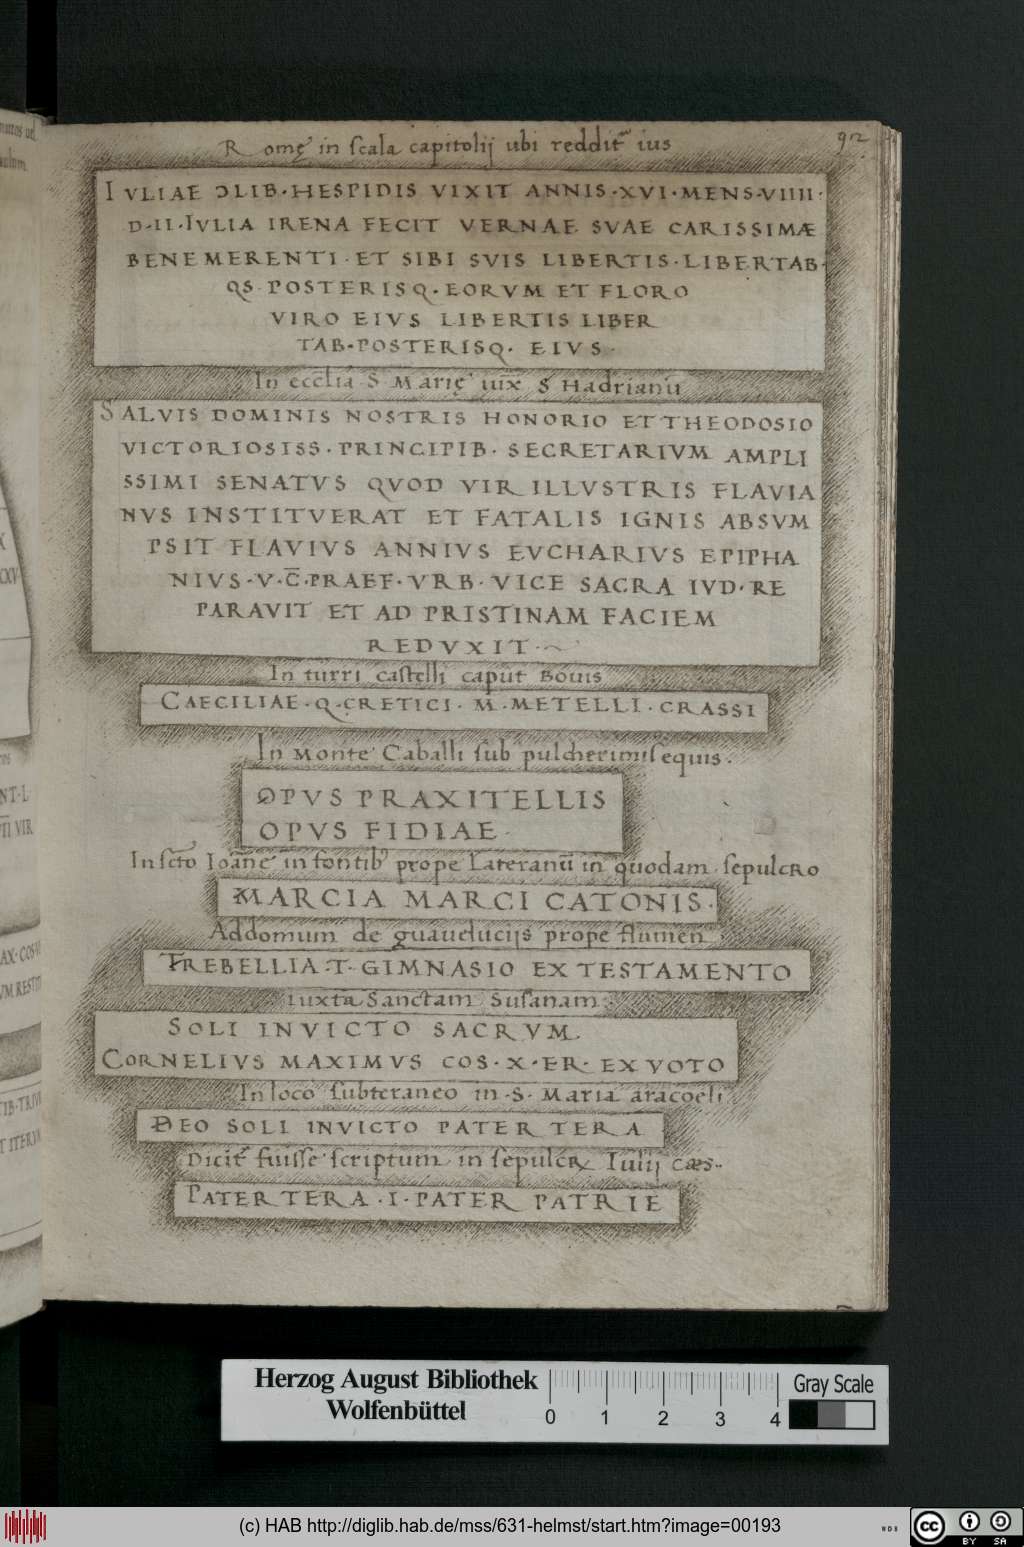 92
Romę in scala capitolij ubi reddit̃ ius
IVLIAE ƆLIB·HESPIDIS VIXIT ANNIS·XVI·MENS·VIIII·
D·II·IVLIA IRENA FECIT VERNAE SVAE CARISSIMÆ
BENEMERENTI·ET SIBI SVIS LIBERTIS·LIBERTAB·
QS·POSTERISQ·EORVM ET FLORO
VIRO EIVS LIBERTIS LIBER
TAB·POSTERISQ·EIVS·
In eccl̃ia S Marię iux̄ S Hadrianū
SALVIS DOMINIS NOSTRIS HONORIO ET THEODOSIO
VICTORIOSISS·PRINCIPIB·SECRETARIVM AMPLI
SSIMI SENATVS QVOD VIR ILLVSTRIS FLAVIA
NVS INSTITVERAT ET FATALIS IGNIS ABSVM
PSIT FLAVIVS ANNIVS EVCHARIVS EPIPHA
NIVS·V·C̄·PRAEF·VRB·VICE SACRA IVD·RE
PARAVIT ET AD PRISTINAM FACIEM
REDVXIT·
In turri castelli caput Bouis
CAECILIAE·Q·CRETICI·M·METELLI·CRASSI
In Monte Caballi sub pulcherimis equis.
OPVS PRAXITELLIS
OPVS FIDIAE·
In scto Ioāne in fontib' prope Lateranū in quodam sepulcro
MARCIA MARCI CATONIS·
Ad domum de prope flumen
TREBELLIA·T·GIMNASIO EX TESTAMENTO
iuxta Sanctam Susanam
SOLI INVICTO SACRVM
CORNELIVS MAXIMVS COS·X·ER·EX VOTO
In loco subteraneo in·S·Maria aracoeli
DEO SOLI INVICTO PATER TERA
Dicit̃ fuisse scriptum in sepulcr Iulij Cæs·
PATER TERA·I·PATER PATRIE
Herzog August Bibliothek
Wolfenbüttel
0 1 2 3 4
Gray Scale
(c) HAB http://diglib.hab.de/mss/631-helmst/start.htm?image=00193
cc BY SA